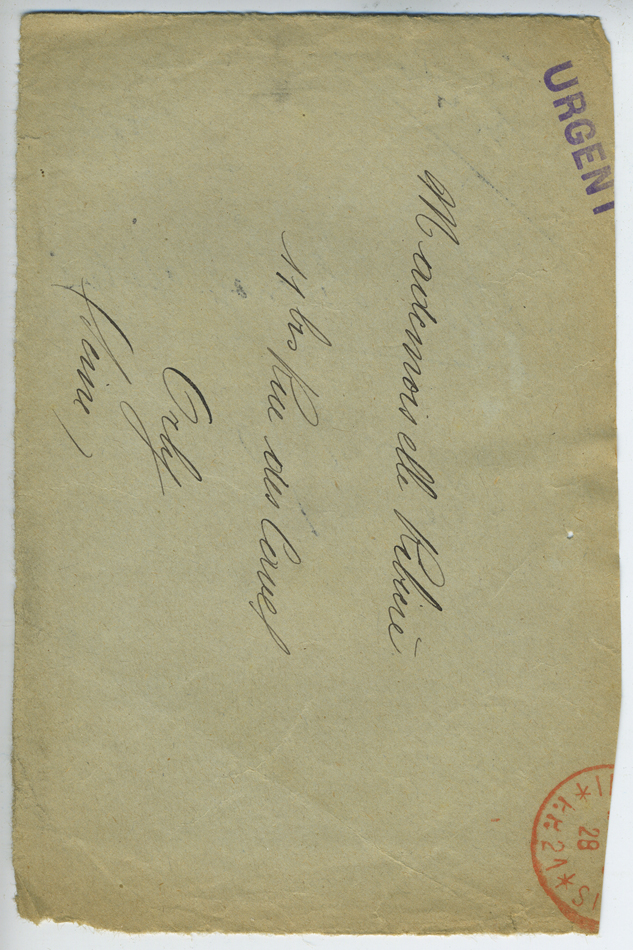 URGENT
Mademoiselle Ribière
11 bis Rue des Caves
Orly
(Seine)
28